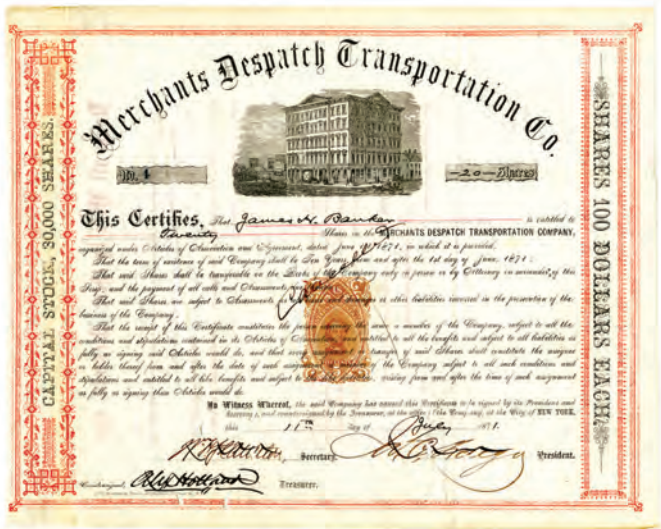 Merchants Despatch Transportation Co.
No. 4
-20- Shares
CAPITAL STOCK, 30,000 SHARES.
SHARES 100 DOLLARS EACH.
This Certifies, That James H. Banker is entitled to
Twenty Shares in the MERCHANTS DESPATCH TRANSPORTATION COMPANY,
organized under Articles of Association and Agreement, dated June 1871, in which it is provided.
That the term of existence of said Company shall be Ten Years from and after the 1st day of June, 1871.
That said Shares shall be transferable on the Books of the Company only in person or by Attorney in surrender of this
Scrip, and the payment of all calls and Assessments
That said Shares are subject to Assessments and damages or other liabilities incurred in the prosecution of the
business of the Company.
That the receipt of this Certificate constitutes the person the same a member of the Company, subject to all the
conditions and stipulations contained in its Articles of and entitled to all the benefits and subject to all liabilities as
fully as signing said Articles would do, and that transfer of said Shares shall constitute the assignee
or holder thereof from and after the date of such the Company subject to all such conditions and
stipulations and entitled to all like benefits and subject to arising from and after the time of such assignment
as fully as signing these Articles would do.
In Witness Whereof, the said Company has caused this Certificate to be signed by its President and
Secretary, and countersigned by the Treasurer, at the office of the Company, at the City of NEW YORK,
this 11th day of July 1871.
Secretary. President.
Countersigned, Treasurer.